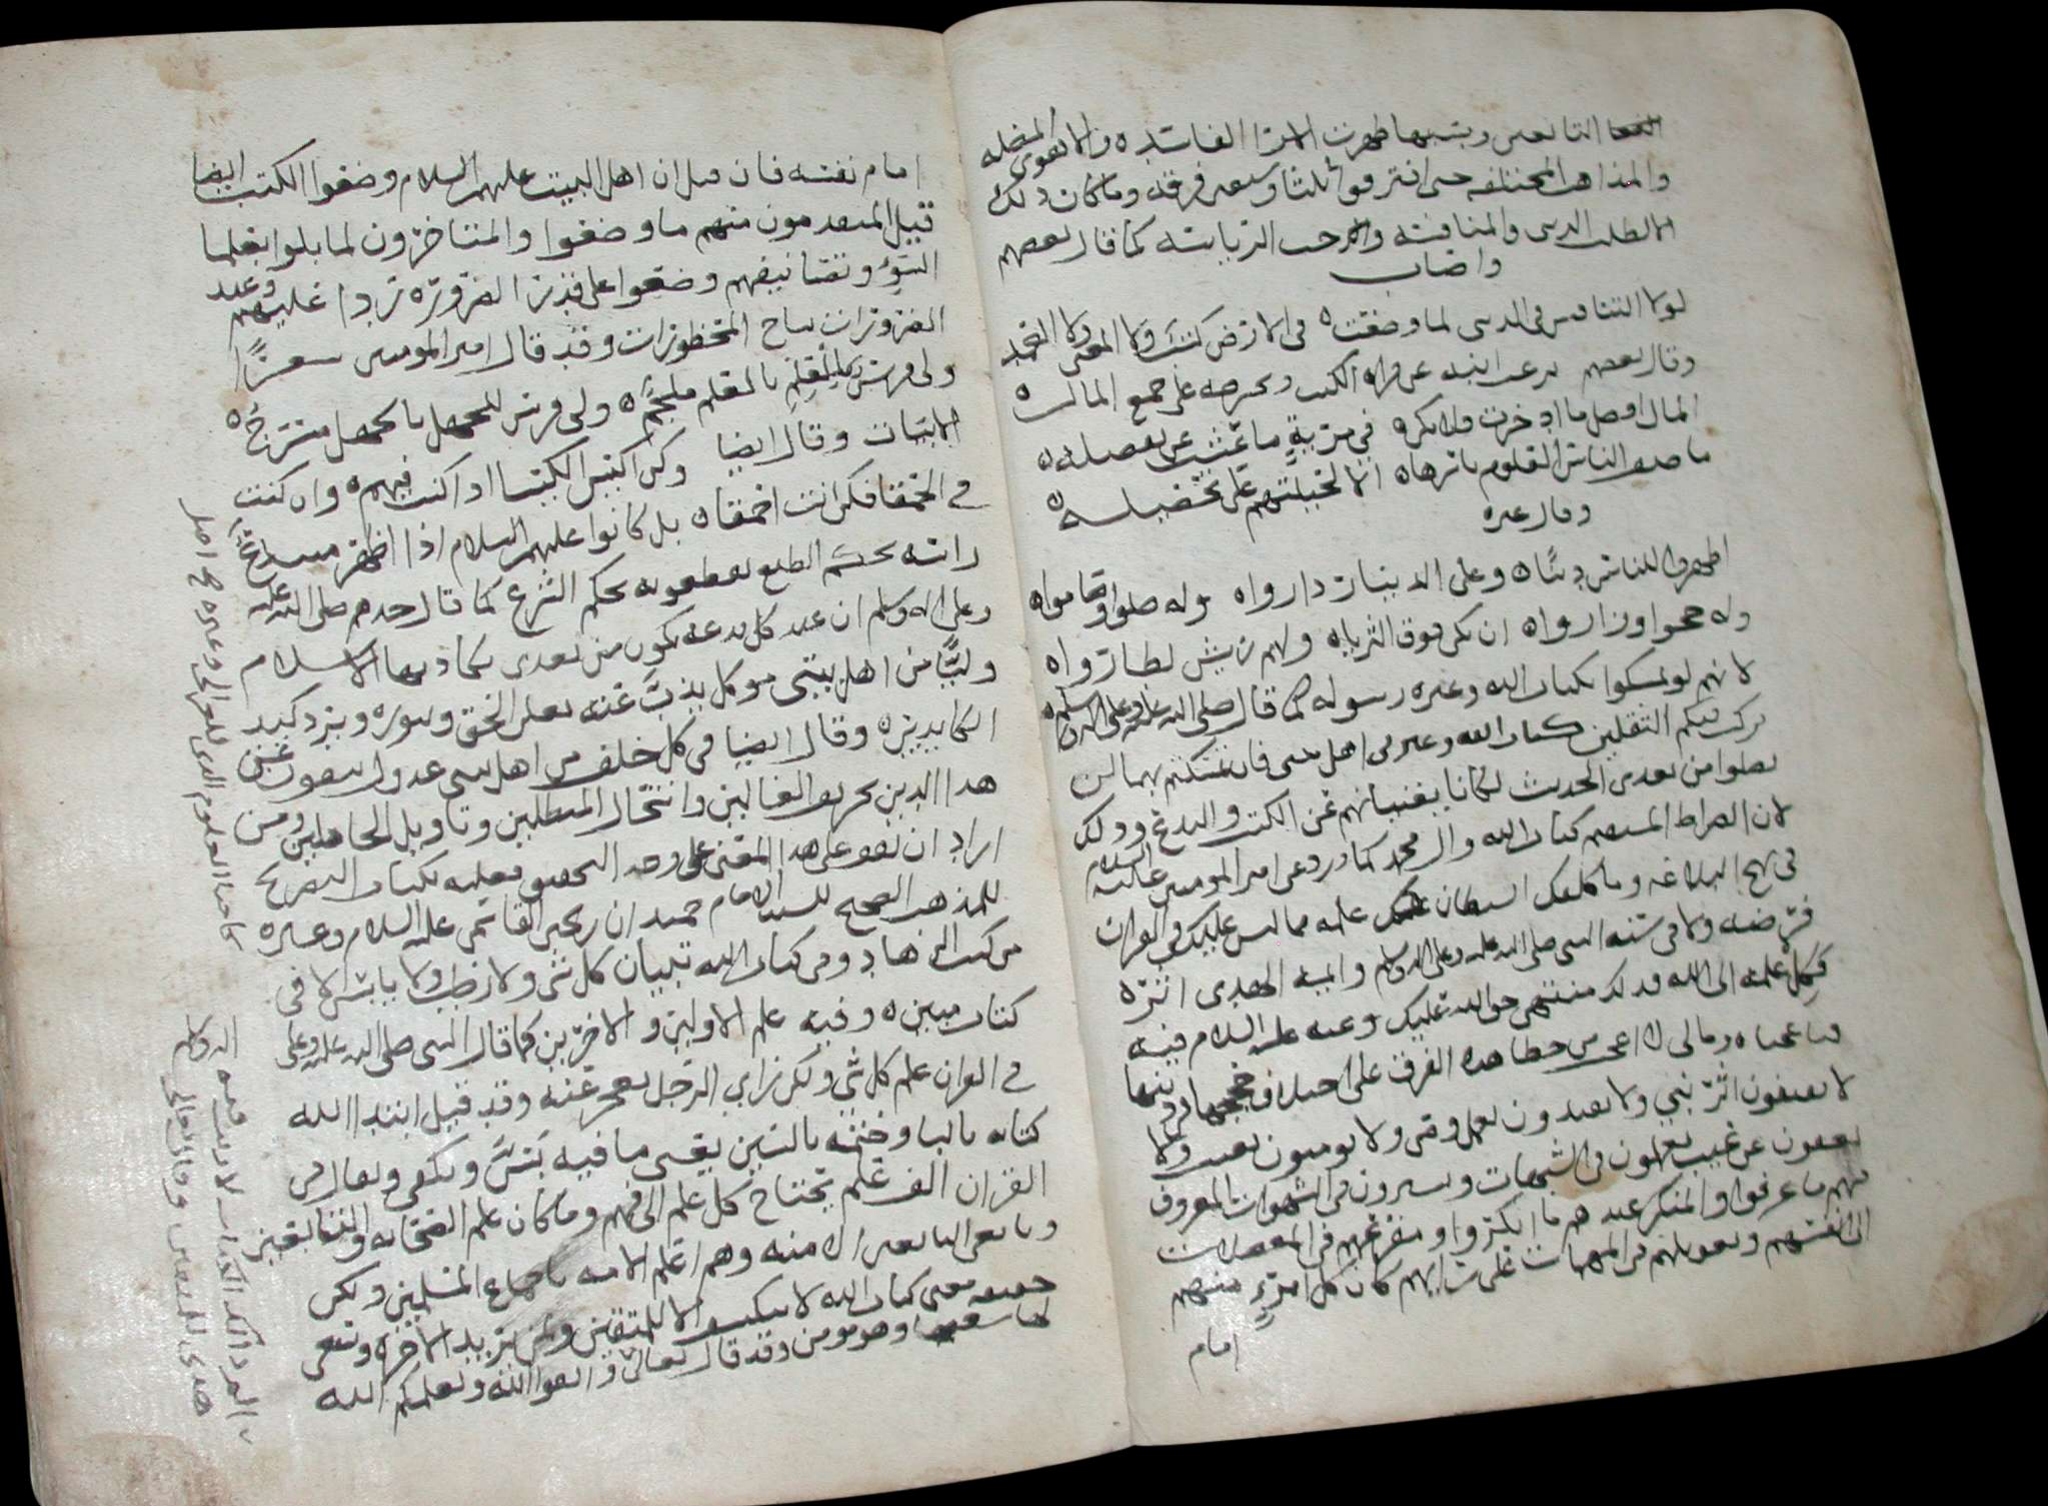 التابعين وبسببها ظهرت الارا الفاسده والاهوى المضله
والمذاهب المختلفه حتى افترقوا ثلثا وسبعين فرقه وما كان ذلك
الا لطلب الدنيى والمنافسه والحب الرياسه كما قال بعضهم
لولا التنافس في الدنيى لما وضعت في الارض كتب ولا المغنى ولا العمد
وقال بعضهم يرغب ابنه عن قراه الكتب ويحرصه على جمع المال
المال افضل ما ادخرت فلا تكن في مريةٍ ما عشت عن تفضيله
ما صنف الناس العلوم باسرها الا لحيلتهم على تحصيله
وقال غيره
اظهروا للناس دينًا وعلى الدينار داروا وله صلوا وصاموا
وله حجوا وزاروا ان يكن فوق الثريا ولهم ريش لطاروا
لانهم لو تمسكوا بكتاب الله وعتره رسوله كما قال صلى الله عليه وعلى اله وسلم
تركت فيكم الثقلين كتاب الله وعترتي اهل بيتي فان تمسكتم بهما لن
تضلوا من بعدي الحديث لكانا يغنيانهم عن الكتب والبدع وذلك
لان الصراط المستقيم كتاب الله وال محمد كما ورد عن امير المومنين عليه السلام
في نهج البلاغه وما كلفك الشيطان علمه مما ليس عليك في القران
فرضه ولا في سنه النبي صلى الله عليه وعلى اله وسلم وايمه الهدى اثره
فكِل علمه الى الله فذلك منتهى حق الله عليك وعنه عليه السلام فيه
فيا عجباه ومالي لا اعجب من خطا هذه الفرق على اختلاف حججها في دينها
لا يقتفون اثر نبي ولا يقتدون بعمل وصي ولا يومنون بغيب ولا
يعفون عن عيب يعملون في الشبهات ويسيرون في الشهوات المعروف
فيهم ما عرفوا والمنكر عندهم ما انكروا ومفزعهم في المعضلات
الى انفسهم وتعويلهم في المبهمات على رايهم كان كل امرءٍ منهم
امام
امام نفسه فان قيل ان اهل البيت عليهم السلام وضعوا الكتب ايضا
قيل المتقدمون منهم ما وضعوا والمتاخرون لما بلوا بعلما
السوء وتصانيفهم وضعوا على قدر الضروره ردا عليهم وعند
الضرورات تباح المحظورات وقد قال امير المومنين شعرًا
ولي فرس للحلم بالحلم ملجم ولي فرس للجهل بالجهل مسرج
الابيات وقال ايضا وكن اكيس الكيسا اذا كنت فيهم وان كنت
في الحمقا فكن انت احمقا بل كانوا عليهم السلام اذا اظهر مبتدع
راسه بحكم الطبع يقطعونه بحكم الشرع كما قال جدهم صلى الله عليه
وعلى اله وسلم ان عند كل بدعه تكون من بعدي يكاد بها الاسلام
وليًّا من اهل بيتي موكل يذبّ عنه يعلن الحق وينوره ويرد كيد
الكايدين وقال ايضا في كل خلف من اهل بيتي عدول ينفون عن
هذا الدين تحريف الغالين وانتحال المبطلين وتاويل الجاهلين ومن
اراد ان يقف على هذا المعنى على وجه التحقيق فعليه بكتاب التصريح
للمذهب الصحيح للسيد الامام حميدان بن يحيى القاسمي عليه السلام وغيره
من كتب الزهاد وفي كتاب الله تبيان كل شي ولا رطب ولا يابس الا في
كتاب مبين وفيه علم الاولين والاخرين كما قال النبي صلى الله عليه وعلى
في القران علم كل شي ولكن راي الرجل يعجز عنه وقد قيل ابتدا الله
كتابه بالبا وختمه بالسين يعني ما فيه بَسَّ ويكفي ويقال في
القران الف علم يحتاج كل علم الى فهم وما كان علم الصحابه والتابعين
وتابعي التابعين الا منه وهم اعلم الامه باجماع المسلمين ولكن
معنى كتاب الله لا ينكشف الا للمتقين ولمن يريد الاخره وسعى
لها سعيها وهو مومن وقد قال تعالى واتقوا الله ويعلمكم الله